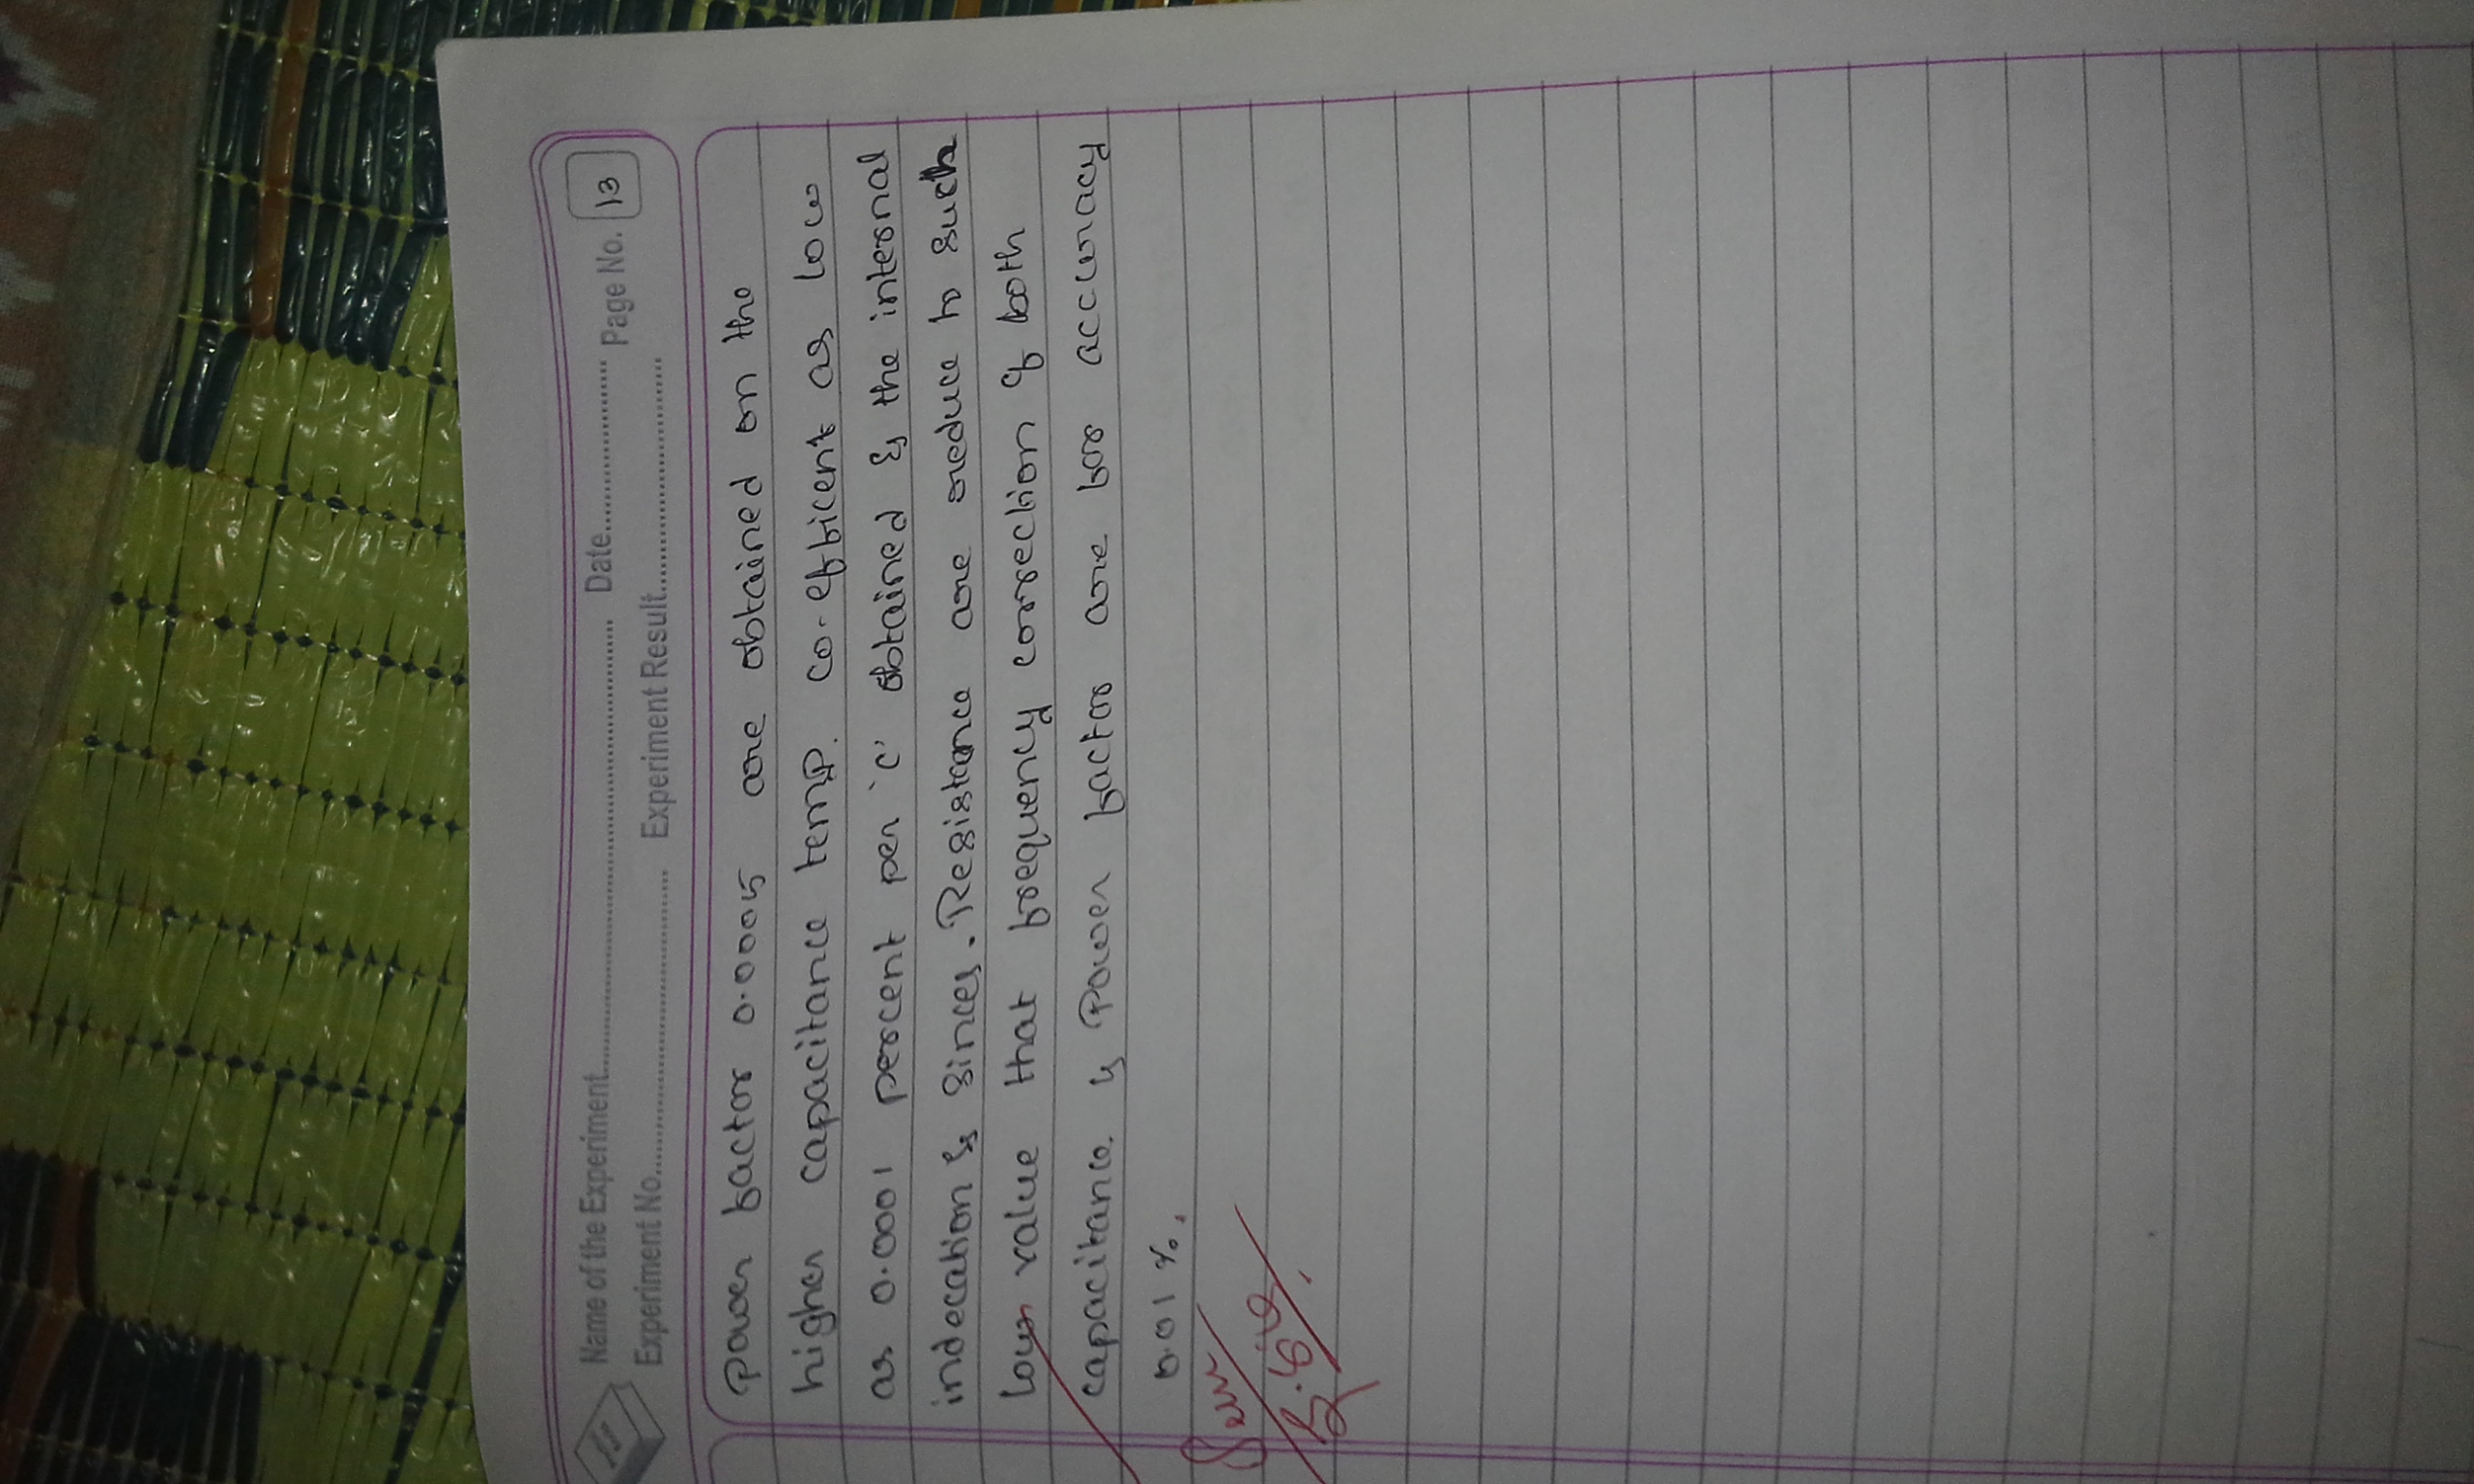 Name of the Experiment................ Date................ Page No. 13
Experiment No................ Experiment Result................
Power factor 0.0005 are obtained on the
higher capacitance temp. co-efficent as low
as 0.0001 percent per 'c' obtained & the internal
indecation & sinces. Registance are reduce to such
lour value that frequency correction of both
capacitance & Power factor are for accuracy
0.01 %.